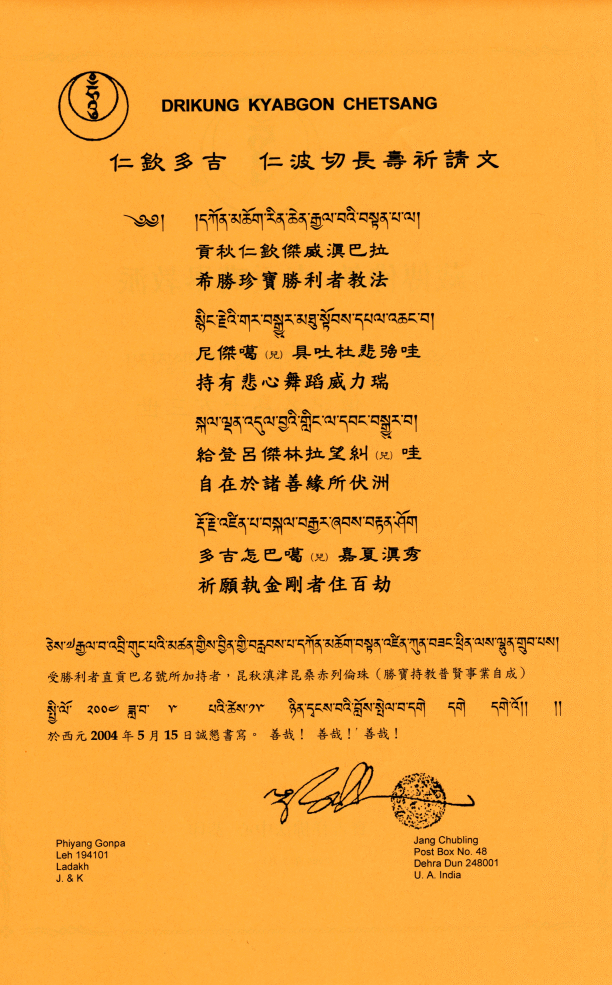 DRIKUNG KYABGON CHETSANG
仁欽多吉　仁波切長壽祈請文
༄༅། །དཀོན་མཆོག་རིན་ཆེན་རྒྱལ་བའི་བསྟན་པ་ལ།
貢秋仁欽傑威滇巴拉
希勝珍寶勝利者教法
སྙིང་རྗེའི་གར་བསྒྱུར་མཐུ་སྟོབས་དཔལ་འཆང་བ།
尼傑噶（兒）具吐杜悲強哇
持有悲心舞蹈威力瑞
སྐལ་ལྡན་འདུལ་བྱའི་གླིང་ལ་དབང་བསྒྱུར་བ།
給登呂傑林拉望糾（兒）哇
自在於諸善緣所伏洲
རྡོ་རྗེ་འཛིན་པ་བསྐལ་བརྒྱར་ཞབས་བརྟན་ཤོག
多吉怎巴噶（兒）嘉夏滇秀
祈願執金剛者住百劫
ཅེས་༧རྒྱལ་བ་འབྲི་གུང་པའི་མཚན་གྱིས་བྱིན་གྱི་བརླབས་པ་དཀོན་མཆོག་བསྟན་འཛིན་ཀུན་བཟང་ཕྲིན་ལས་ལྷུན་གྲུབ་པས།
受勝利者直貢巴名號所加持者，昆秋滇津昆桑赤列倫珠（勝寶持教普賢事業自成）
སྤྱི་ལོ་ ༢༠༠༤ ཟླ་བ་ ༥ པའི་ཚེས་༡༥ ཉིན་དྭངས་བའི་བློས་སྤེལ་བ་དགེ དགེ དགེའོ།། །།
於西元 2004 年 5 月 15 日誠懇書寫。 善哉！ 善哉！ 善哉！
Phiyang Gonpa
Leh 194101
Ladakh
J. & K
Jang Chubling
Post Box No. 48
Dehra Dun 248001
U. A. India